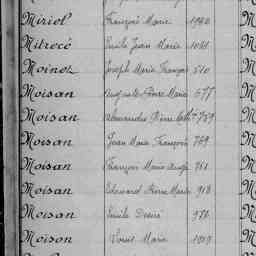 Miriel François Marie 1920
Mitrecé Emile Jean Marie 1081
Moinet Joseph Marie François 510
Moisan Auguste Pierre Marie 677
Moisan Alexandre Pierre 789
Moisan Jean Marie François 769
Moisan François Marie 761
Moisan Edouard Pierre Marie 918
Moisan Emile Désiré 976
Moison Louis Marie 1009